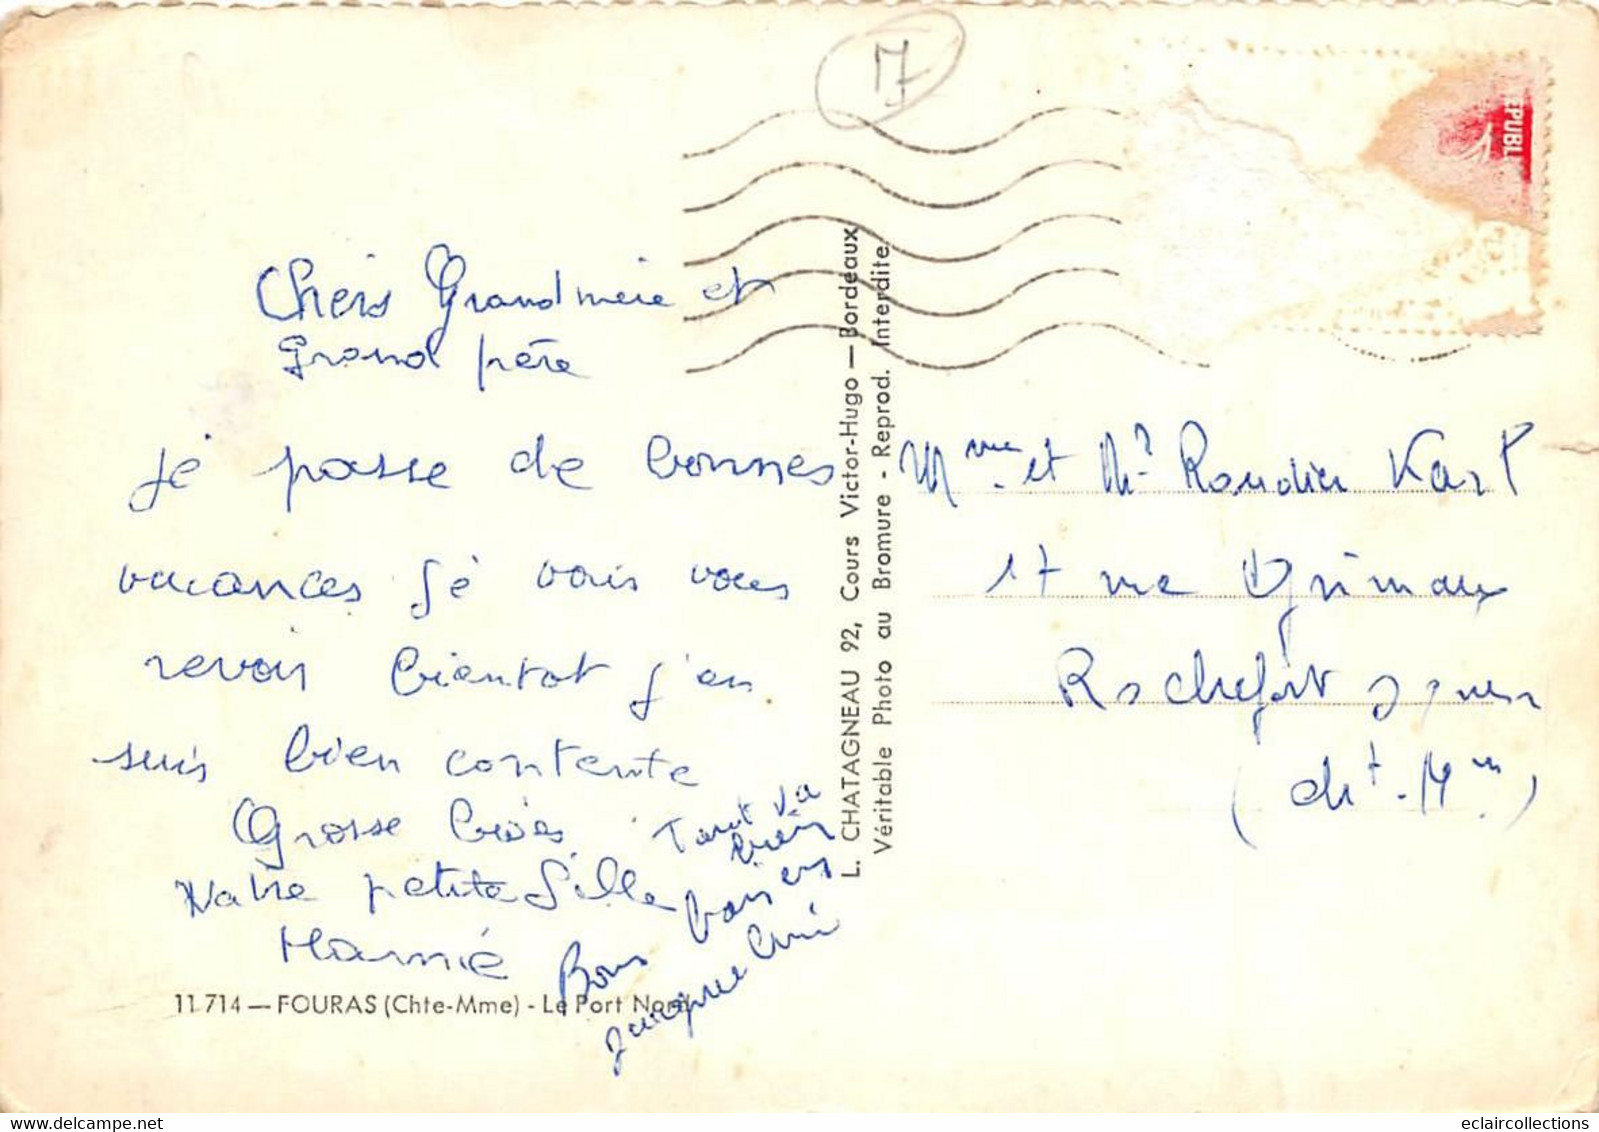 17
EPUBL
Chers Grandmère et
Grand père
je passe de bonnes
vacances je vais vous
revoir bientot j'en
suis bien contente
Grosse bises
Votre petite fille
Tout va
bien
Bons baisers
Jacques
L. CHATAGNEAU 92, Cours Victor-Hugo — Bordeaux
Véritable Photo au Bromure - Reprod. Interdite.
Mme et Mr Karl
17 rue Grimaux
Rochefort
(cht. Mm)
11.714 — FOURAS (Chte-Mme) - Le Port Nord
eclaircollections